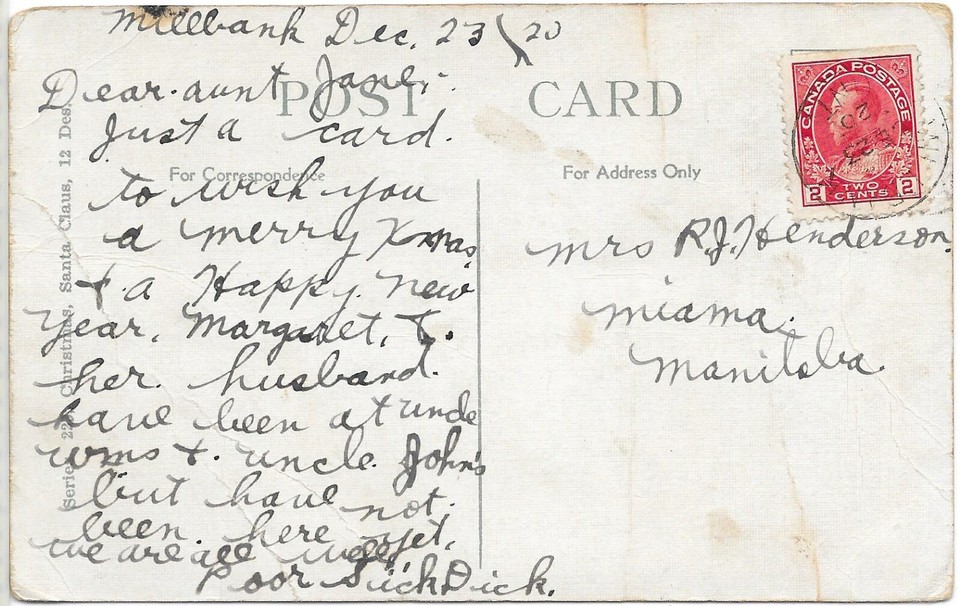 Millbank Dec. 23/20
Dear aunt Jane,
POST CARD
Just a card.
For Correspondence
For Address Only
to wish you
a merry Xmas
& a Happy New
Year, Margaret, &
her husband.
have been at uncle
wms & uncle John's
but have not
been here yet,
we are all well
Poor Sick Dick.
Mrs R.J. Henderson.
Miama.
Manitoba.
CANADA POSTAGE
2 TWO CENTS 2
Christmas, Santa Claus, 12 Des.